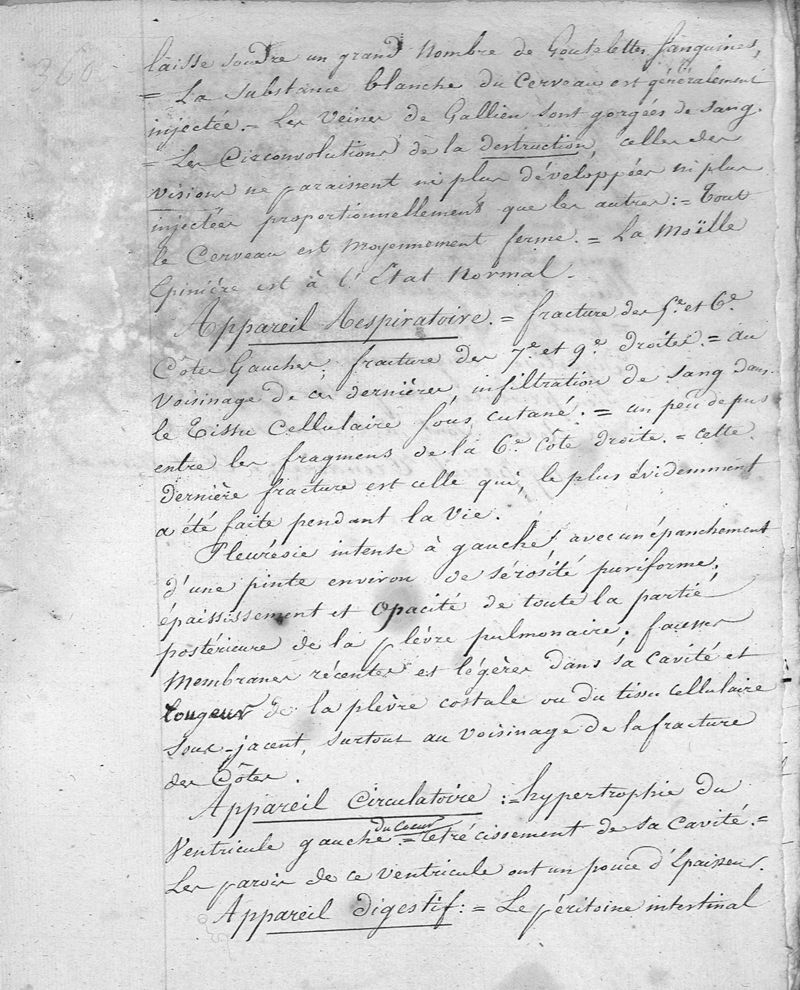 360
laisse soudre un grand Nombre de Goutelettes sanguines,
= La substance blanche du Cerveau est généralement
injectée. = Les Veines de Gallien sont gorgées de sang.
= Les Circonvolutions de la destruction, celles des
visions ne paraissent ni plus développées ni plus
injectées proportionnellement que les autres: = Tout
le Cerveau est Moyennement ferme. = La Moïlle
Epinière est à l'Etat Normal.
Appareil Respiratoire. = fracture des 5e. et 6e.
Côtes Gauches; fracture des 7e. et 9e. droites. = au
Voisinage de ces dernières, infiltration de sang dans
le Tissu Cellulaire sous cutané. = un peu de pus
entre les fragmens de la 6e. côte droite. = cette
dernière fracture est celle qui, le plus évidemment
a été faite pendant la Vie.
Pleurésie intense à gauche, avec un épanchement
d'une pinte environ de sérosité puriforme;
épaississement et Opacité de toute la partie
postérieure de la plèvre pulmonaire; fausses
Membranes récentes et légères dans sa Cavité et
rougeur de la plèvre costale ou du tissu cellulaire
sous-jacent, surtout au Voisinage de la fracture
des Côtes.
Appareil Circulatoire : = hypertrophie du
Ventricule gauche du Coeur = Retrécissement de sa Cavité. =
Les parois de ce Ventricule ont un pouce d'Epaisseur.
Appareil digestif: = Le péritoine intestinal